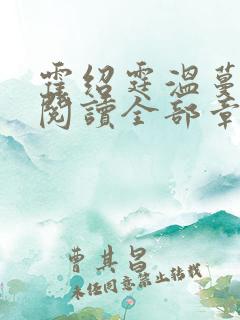 霍绍霆温蔓
阅读全部章
曹其昌
未经同意禁止转载